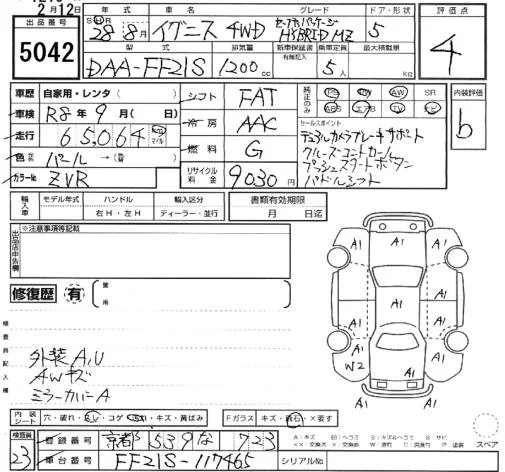 2月12日
出品番号
5042
年式 車名 グレード ドア・形状
SH 28年8月 イグニス 4WD セーフティパッケージ HYBRID MZ 5
型式 排気量 新車保証書 乗車定員 最大積載量
有無記入
DAA-FF21S 1200cc 5人 kg
評価点
4
車歴 自家用・レンタ( )
車検 R8年9月( 日)
走行 65,064 km マイル
色 パール→( )
カラーNo. ZVR
シフト FAT
冷房 AAC
燃料 G
リサイクル料金 9030円
純正のみ PS PW AW SR
ABS エアB TV ナビ
セールスポイント
デュアルカメラブレーキサポート
クルーズコントロール
プッシュスタートボタン
パドルシフト
内装評価
b
輸入車 モデル年式 ハンドル 輸入区分
右H・左H ディーラー・並行
書類有効期限
月 日迄
出品店申告欄
※注意事項等記載
修復歴 有 箇所
検査員記入欄
外装A,U
AWキズ
ミラーカバーA
A1 A1 A1
A1 A1
A1 A1 A1
A1 A1
W2 A1
A1
内装シート 穴・破れ・コゲ・キズ・黄ばみ Fガラス キズ・飛石・×要す
検査員
23
登録番号 京都 539 な 723
車台番号 FF21S-117465 シリアルNo.
スペア